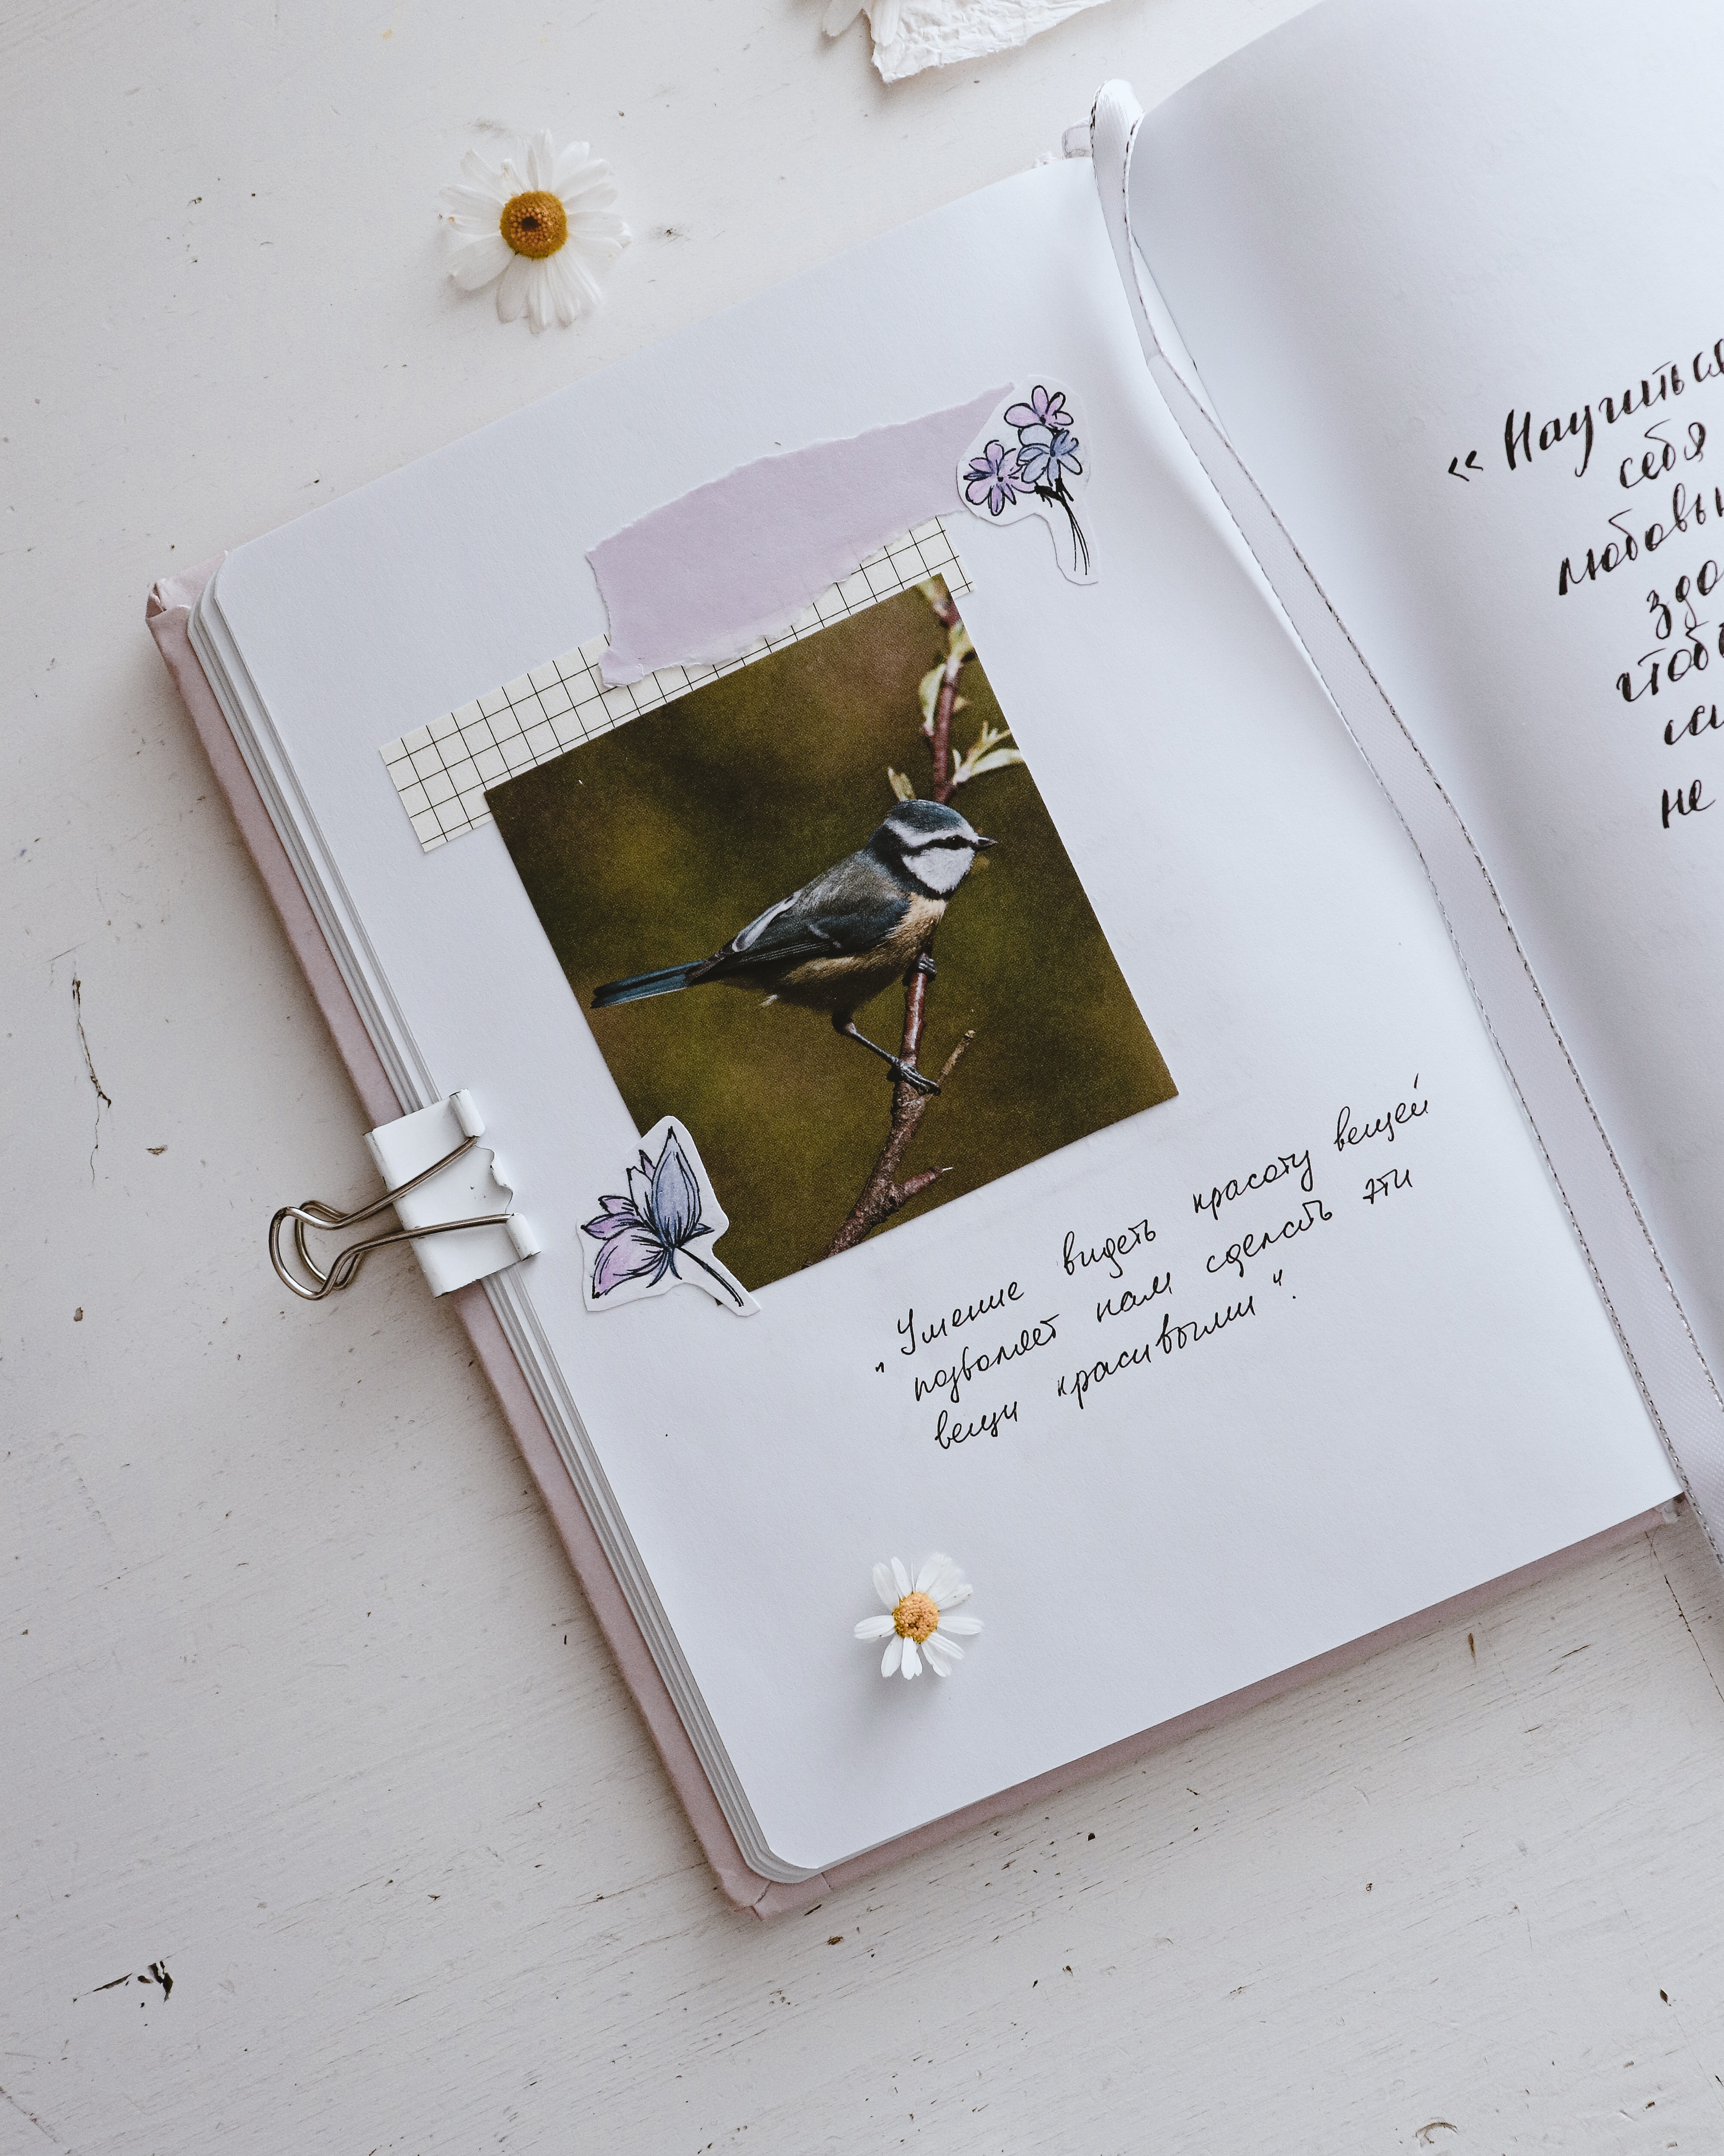 „Умение видеть красоту вещей
позволяет нам сделать эти
вещи красивыми“.
«Научиться
себя
не